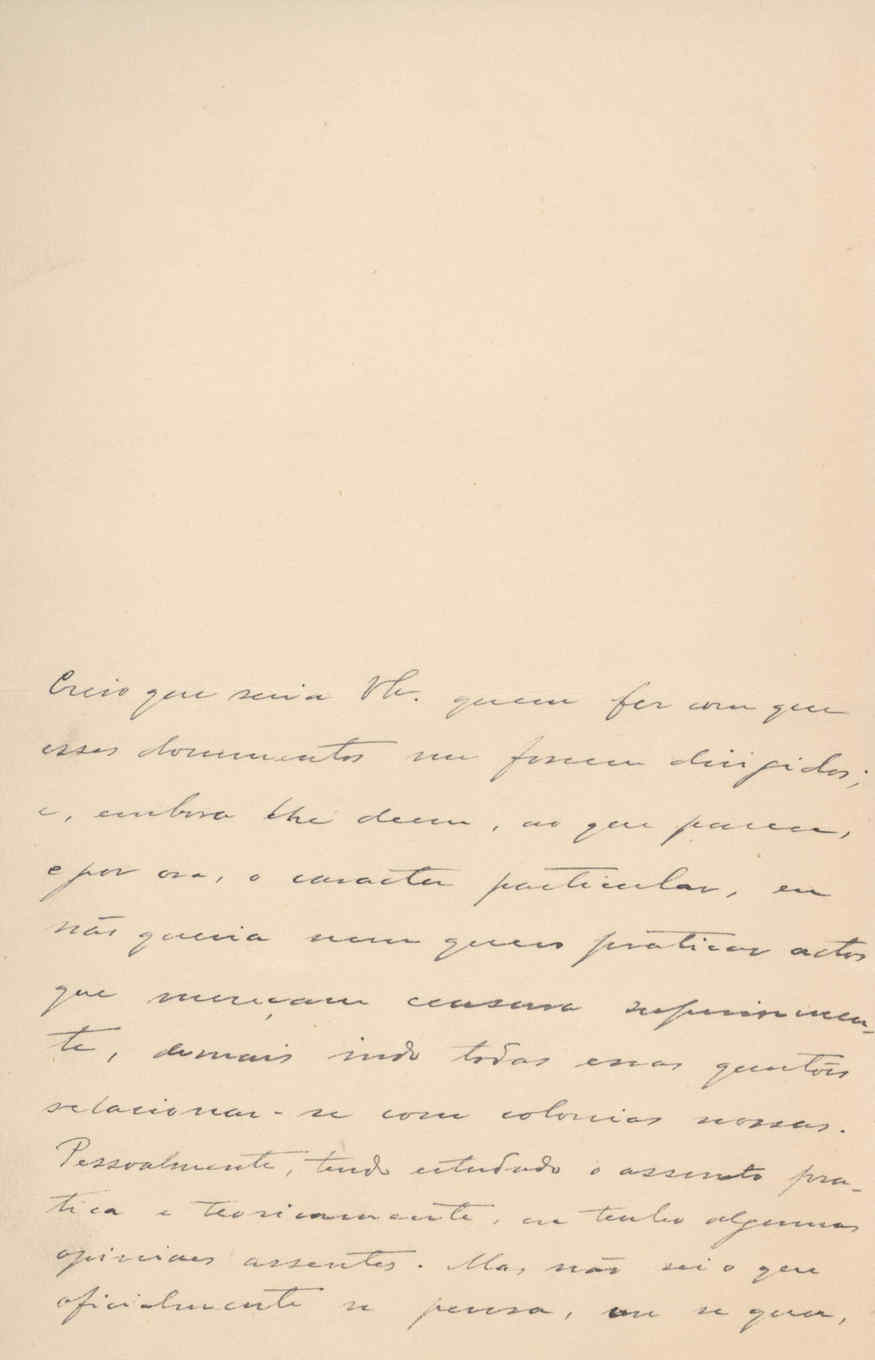 Creio que seria V. quem fez com que
esses documentos me fossem dirigidos;
e, embora lhe deem, ao que parece,
e por ora, o caracter particular, eu
não queria nem quero praticar actos
que mereçam censura superiormen-
te, demais indo todas essas questões
relacionar-se com colonias nossas.
Pessoalmente, tendo estudado o assunto pra-
tica e teoricamente, eu tenho algumas
opiniões assentes. Mas não sei o que
oficialmente se pensa, ou se quer,